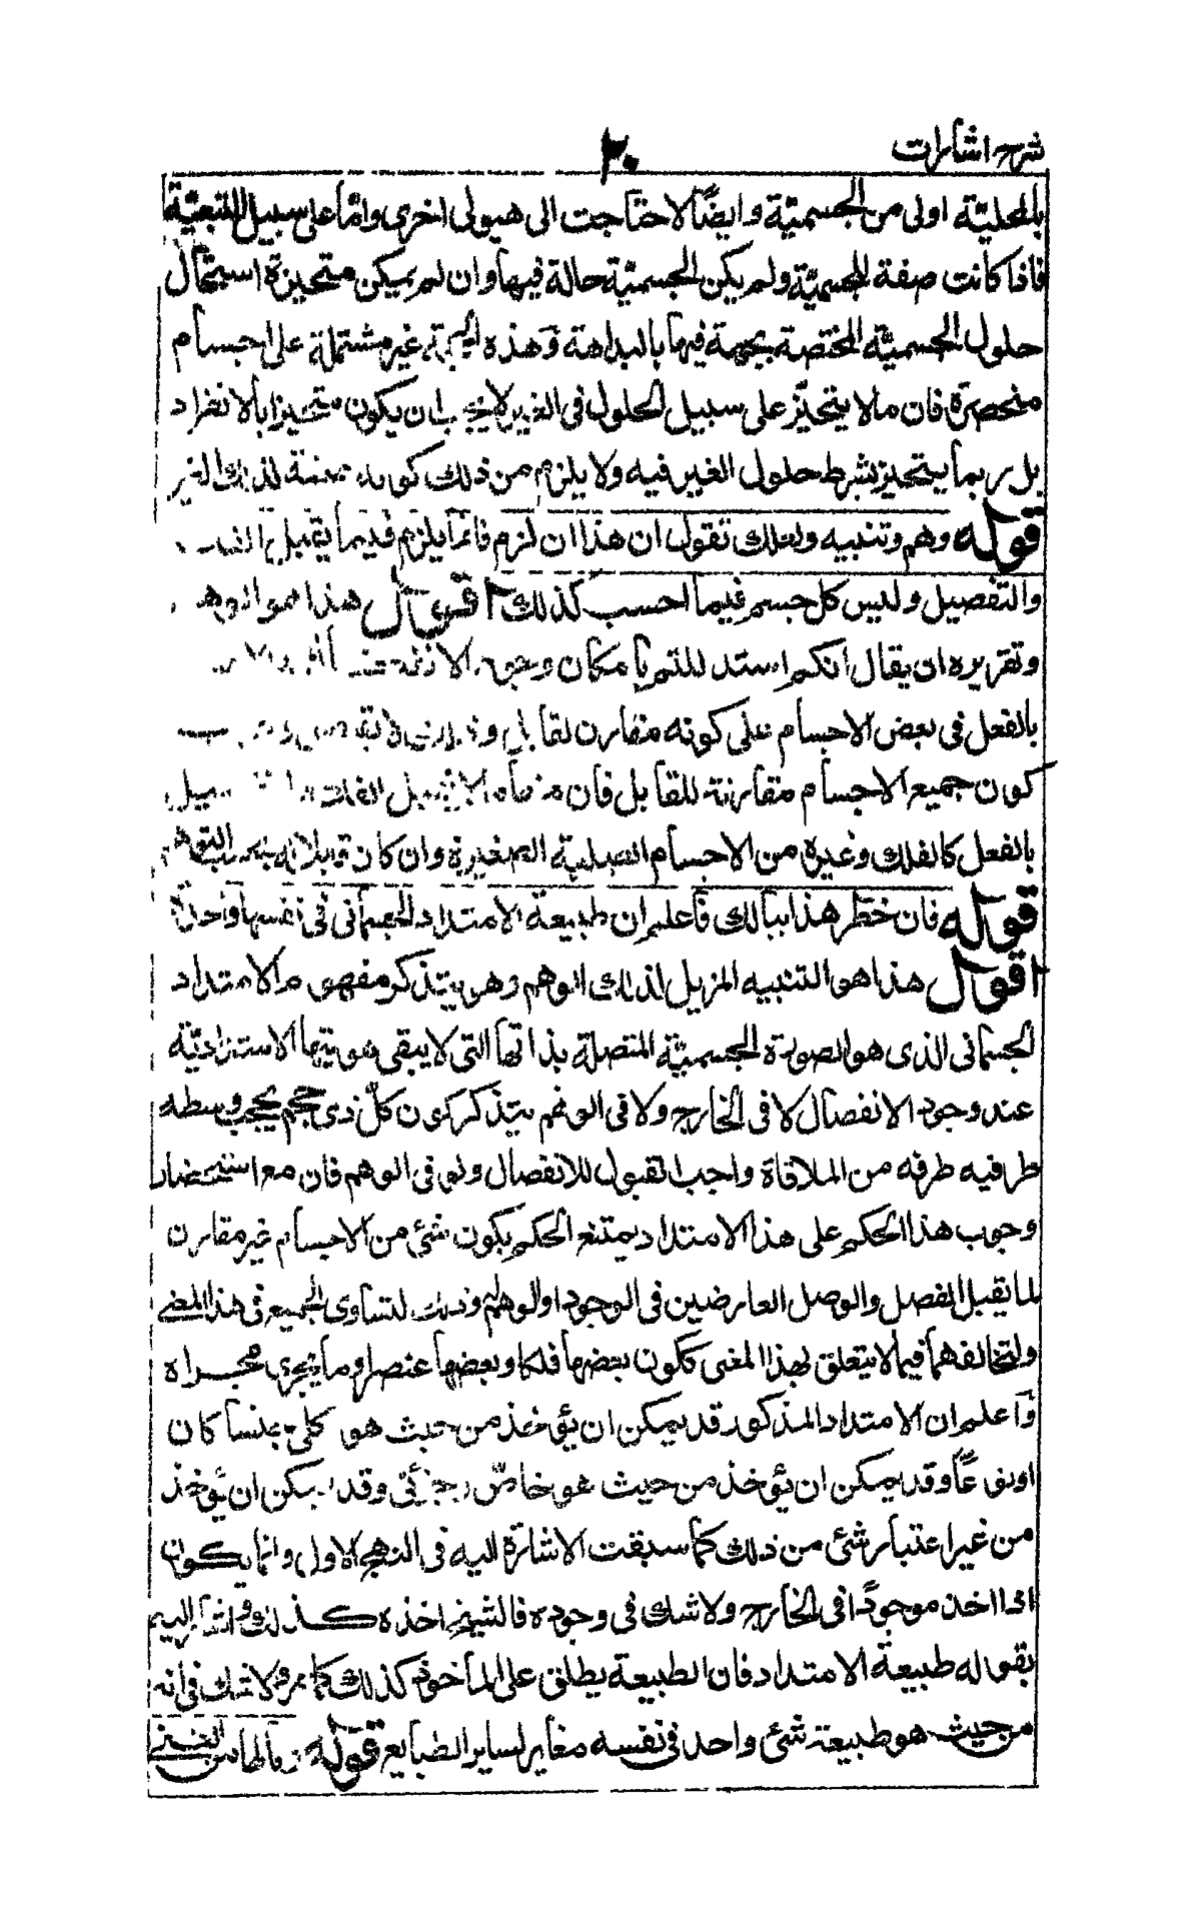 شرح اشارات
٣٠
بالمحلية اولى من الجسمية وايضًا لاحتاجت الى هيولى اخرى واما على سبيل التبعية
فاذا كانت صفة للجسمية ولم يكن الجسمية حالة فيها وان لم يكن متحيزة استحال
حلول الجسمية المختصة بجهة فيها بالبداهة وهذه غير مشتملة على اجسام
منحصرة فان ما لا يتحيز على سبيل الحلول فى الغير لا يجب ان يكون متحيزا بالانفراد
بل ربما يتحيز بشرط حلول الغير فيه ولا يلزم من ذلك كونه صفة لذلك الغير
قوله وهم وتنبيه ولعلك تقول ان هذا ان لزم فانما يلزم فيما يقبل
والتفصيل وليس كل جسم فيما احسب كذلك اقول هذا هو الوهم
وتقريره ان يقال انكم استدللتم بامكان وجود
بالفعل فى بعض الاجسام على كونه مقارن لقابل
كون جميع الاجسام مقارنة للقابل فان
بالفعل كالفلك وغيره من الاجسام الصلبية الصغيرة وان كان قابلا له بحسب التوهم
قوله فان خطر هذا ببالك فاعلم ان طبيعة الامتداد الجسمانى فى نفسها واحدة
اقول هذا هو التنبيه المزيل لذلك الوهم وهو يتذكر مفهوم الامتداد
الجسمانى الذى هو الصورة الجسمية المتصلة بذاتها التى لا يبقى هويتها الامتدادية
عند وجود الانفصال لا فى الخارج ولا فى الوهم يتذكر كون كل ذى حجم يحجب وسطه
طرفيه طرفه من الملاقاة واجب القبول للانفصال ولو فى الوهم فان مع استحضار
وجوب هذا الحكم على هذا الامتداد يمتنع الحكم بكون شئ من الاجسام غير مقارن
لما يقبل الفصل والوصل العارضين فى الوجود او الوهم وذلك لتساوى الجميع فى هذا المعنى
ولتخالفهما فيما لا يتعلق بهذا المعنى ككون بعضها فلكا وبعضها عنصرا وما يجرى مجراه
واعلم ان الامتداد المذكور قد يمكن ان يؤخذ من حيث هو كلى جنسا كان
او نوعًا وقد يمكن ان يؤخذ من حيث هو خاص جزئى وقد يمكن ان يؤخذ
من غير اعتبار شئ من ذلك كما سبقت الاشارة اليه فى النهج الاول وانما يكون
اذا اخذ موجودًا فى الخارج ولا شك فى وجوده فالشيخ اخذه كذلك واشار اليه
بقوله طبيعة الامتداد فان الطبيعة يطلق على المأخوذ كذلك كما مر ولا شك فى انه
من حيث هو طبيعة شئ واحد فى نفسه مغاير لساير الطبايع قوله ومالها من الغنى